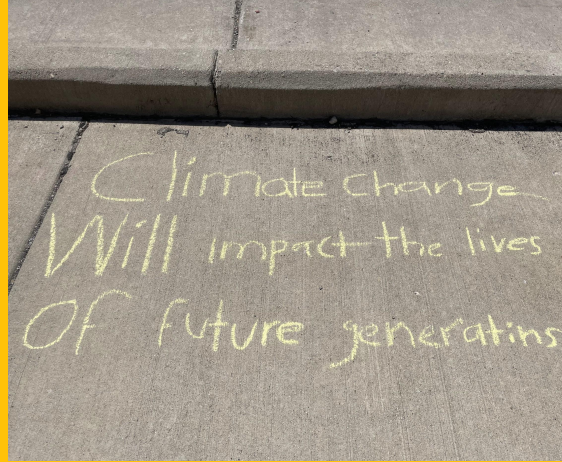 Climate change
Will impact the lives
Of future generatins